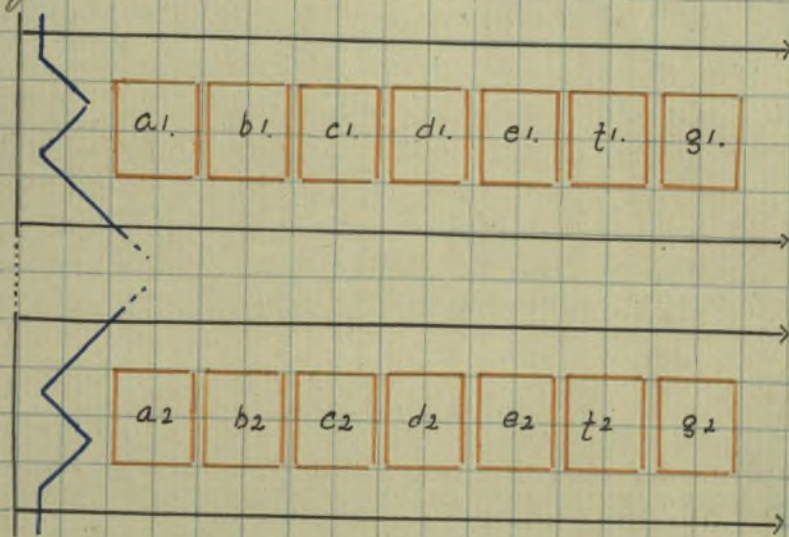 a1. b1. c1. d1. e1. t1. g1.
a2 b2 c2 d2 e2 t2 g2